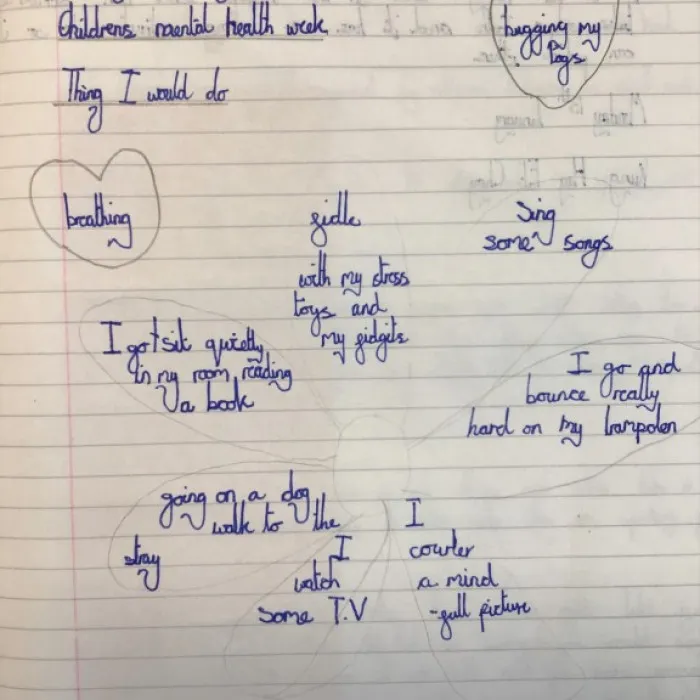 Childrens mental health week
Thing I would do
hugging my
Pogs
breathing
fidle
with my stress
toys and
my fidgits
Sing
some songs
I go+sit quietly
in my room reading
a book
I go and
bounce really
hard on my trampolen
going on a dog
walk to the
stray
I
watch
some T.V
I
couler
a mind
-full picture